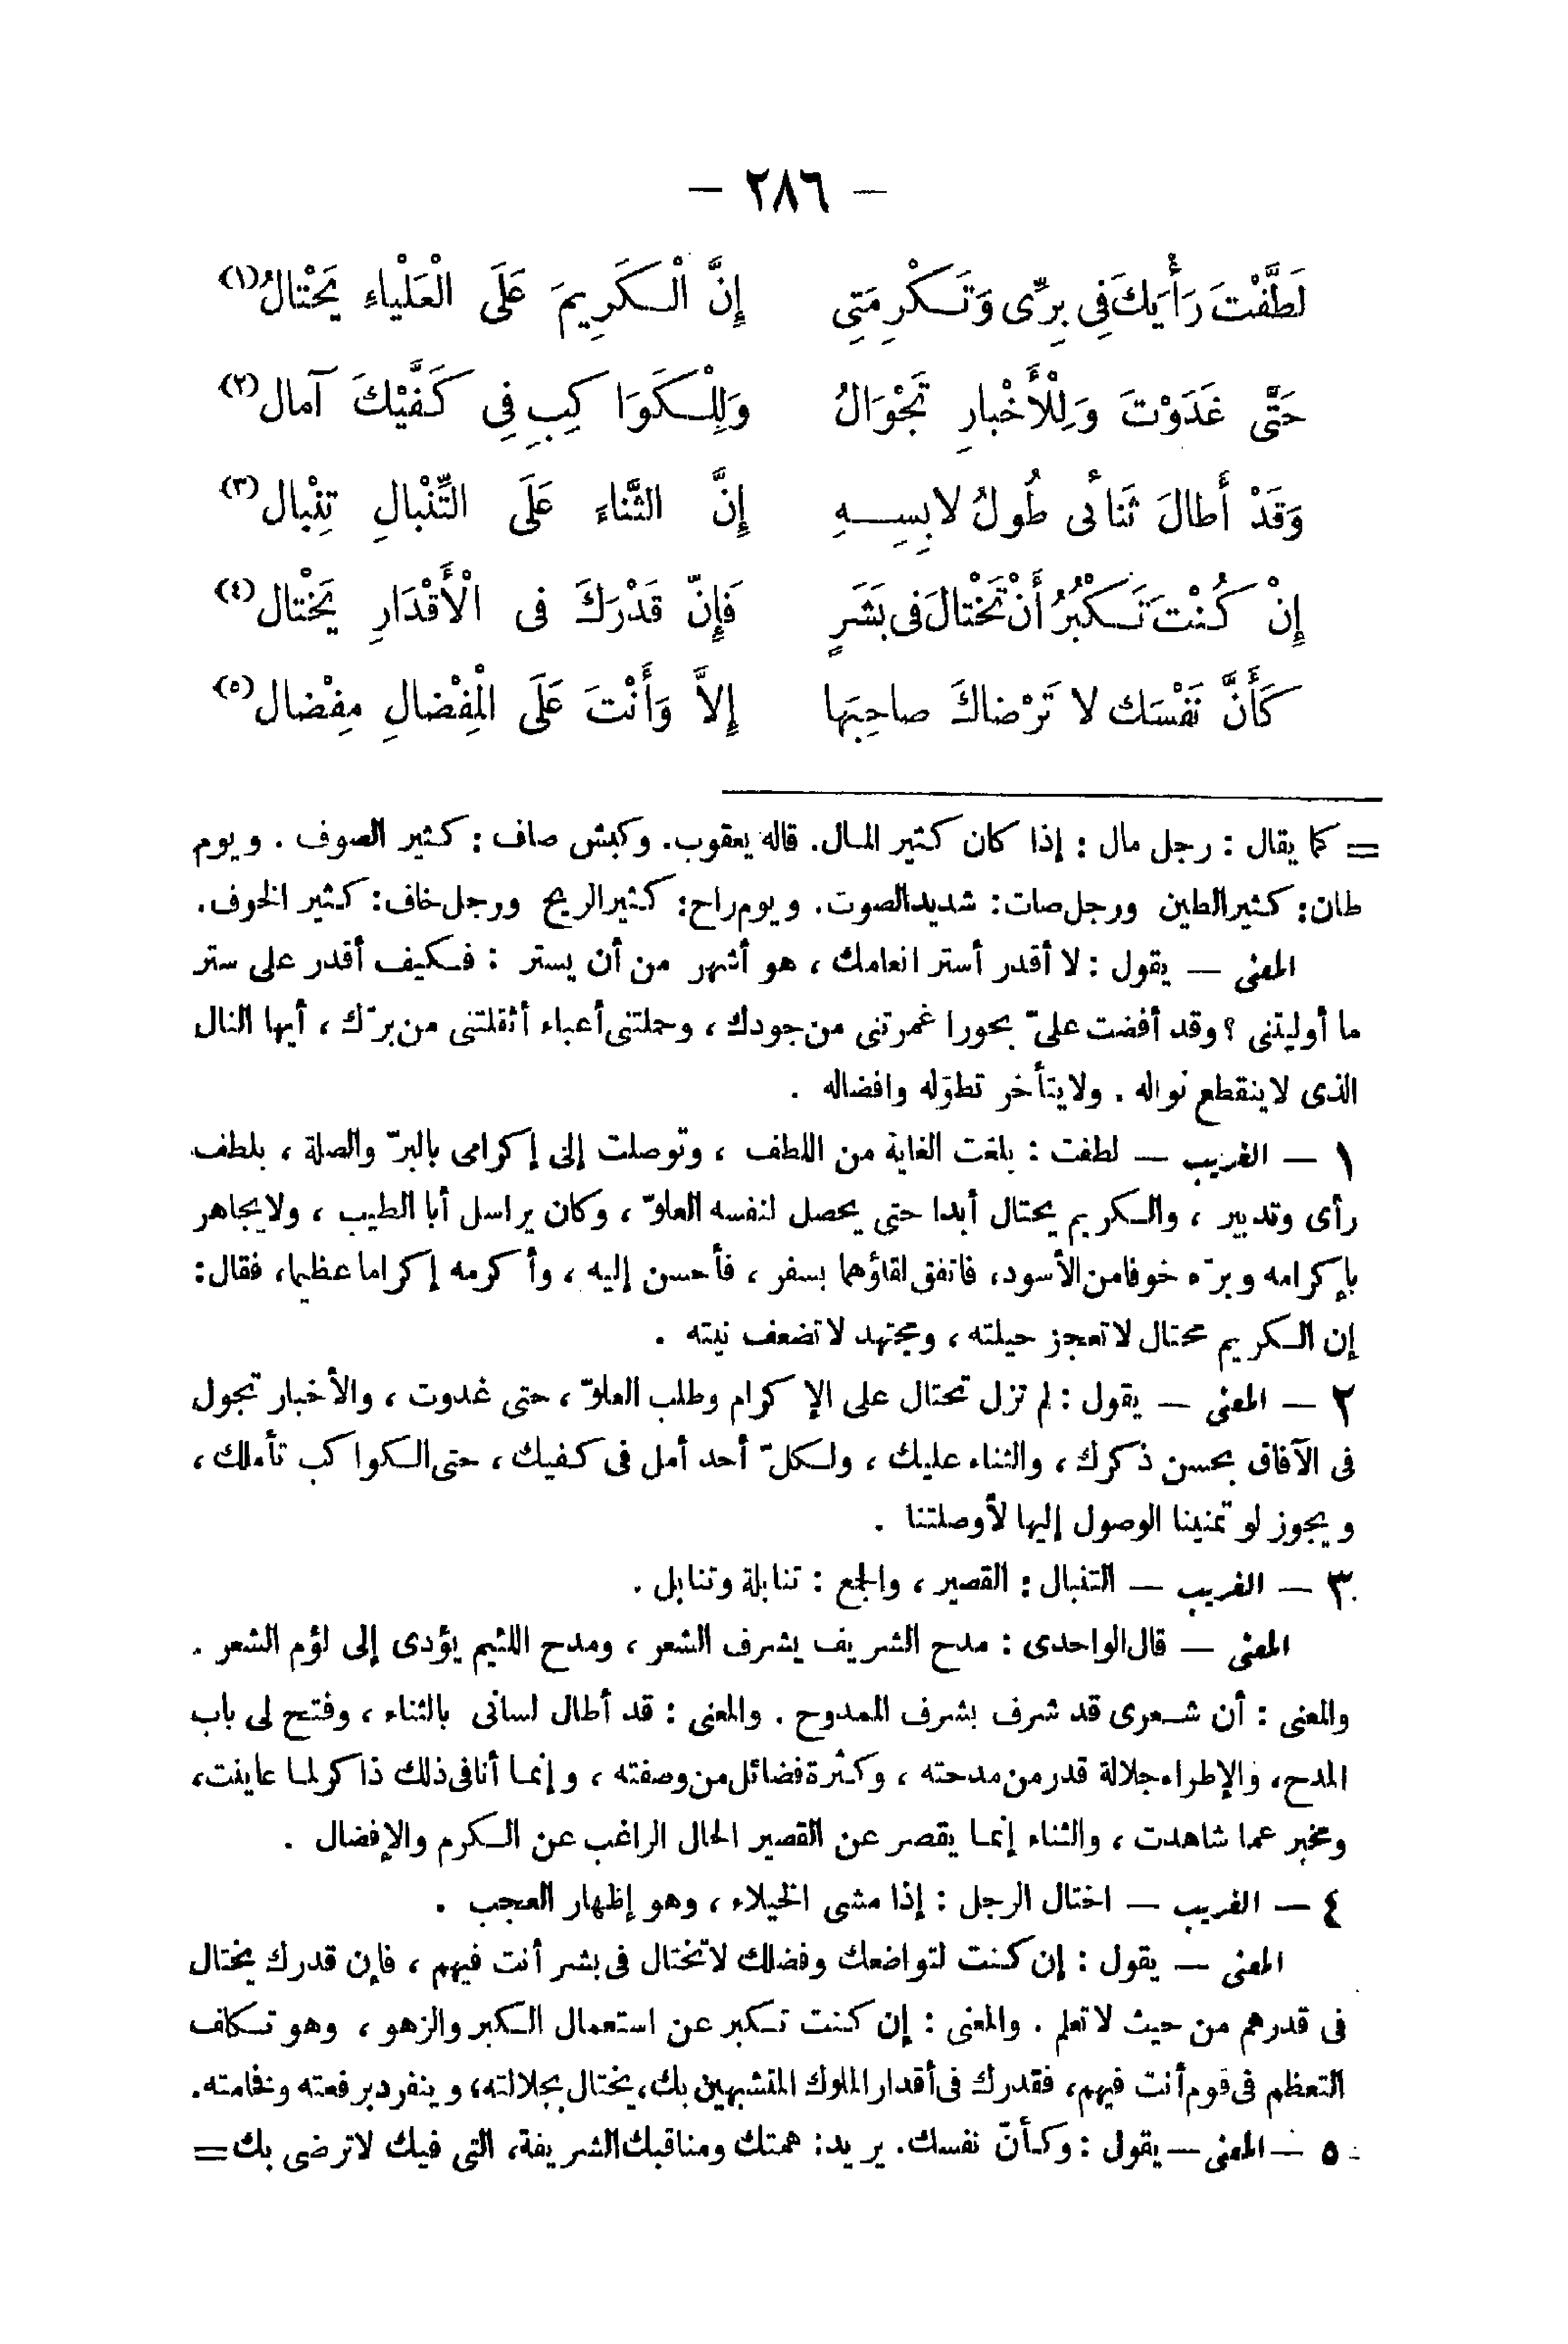 — ٢٨٦ —
لَطَّفْتَ رَأْيَكَ فِى بِرِّى وَتَكْرِمَتِى إِنَّ الْكَرِيمَ عَلَى الْعَلْيَاءِ يَحْتالُ(١)
حَتَّى غَدَوْتَ وَلِلْأَخْبارِ تَجْوَالُ وَلِلْكَوَاكِبِ فِى كَفَّيْكَ آمال(٢)
وَقَدْ أَطالَ ثَنائى طُولُ لابِسِهِ إِنَّ الثَّناءَ عَلَى التِّنْبالِ تِنْبال(٣)
إِنْ كُنْتَ تَكْبُرُ أَنْ تَخْتالَ فى بَشَرٍ فَإِنّ قَدْرَكَ فى الْأَقْدَارِ يَخْتال(٤)
كَأَنَّ نَفْسَك لا تَرْضاكَ صاحِبَها إِلاَّ وَأَنْتَ عَلَى الْمِفْضالِ مِفْضال(٥)
= كما يقال : رجل مال : إذا كان كثير المال. قاله يعقوب. وكبش صاف : كثير الصوف . ويوم
طان: كثير الطين ورجل صات: شديد الصوت. ويوم راح: كثير الريح ورجل خاف: كثير الخوف.
المعنى — يقول : لا أقدر أستر انعامك ، هو أشهر من أن يستر : فكيف أقدر على ستر
ما أوليتنى ؟ وقد أفضت علىّ بحورا غمرتنى من جودك ، وحملتنى أعباء أثقلتنى من برّك ، أيها النال
الذى لاينقطع نواله . ولايتأخر تطوّله وافضاله .
١ — الغريب — لطفت : بلغت الغاية من اللطف ، وتوصلت إلى إكرامى بالبرّ والصلة ، بلطف
رأى وتدبير ، والكريم يحتال أبدا حتى يحصل لنفسه العلوّ ، وكان يراسل أبا الطيب ، ولايجاهر
بإكرامه وبرّه خوفا من الأسود، فاتفق لقاؤهما بسفر ، فأحسن إليه ، وأكرمه إكراما عظيما، فقال:
إن الكريم محتال لاتعجز حيلته ، ومجتهد لاتضعف نيته .
٢ — المعنى — يقول : لم تزل تحتال على الإكرام وطلب العلوّ ، حتى غدوت ، والأخبار تجول
فى الآفاق بحسن ذكرك ، والثناء عليك ، ولكلّ أحد أمل فى كفيك ، حتى الكواكب تأملك ،
ويجوز لو تمنينا الوصول إليها لأوصلتنا .
٣ — الغريب — التنبال : القصير ، والجمع : تنابلة وتنابل .
المعنى — قال الواحدى : مدح الشريف يشرف الشعر ، ومدح اللئيم يؤدى إلى لؤم الشعر .
والمعنى : أن شعرى قد شرف بشرف الممدوح . والمعنى : قد أطال لسانى بالثناء ، وفتح لى باب
المدح، والإطراء جلالة قدر من مدحته ، وكثرة فضائل من وصفته ، وإنما أنا فى ذلك ذاكر لما عاينت،
ومخبر عما شاهدت ، والثناء إنما يقصر عن القصير الحال الراغب عن الكرم والإفضال .
٤ — الغريب — اختال الرجل : إذا مشى الخيلاء ، وهو إظهار العجب .
المعنى — يقول : إن كنت لتواضعك وفضلك لاتختال فى بشر أنت فيهم ، فإن قدرك يختال
فى قدرهم من حيث لاتعلم . والمعنى : إن كنت تكبر عن استعمال الكبر والزهو ، وهو تكلف
التعظم فى قوم أنت فيهم، فقدرك فى أقدار الملوك المتشبهين بك، يختال بجلالته، وينفرد برفعته وفخامته.
٥ — المعنى — يقول : وكأنّ نفسك. يريد: همتك ومناقبك الشريفة، التى فيك لاترضى بك =